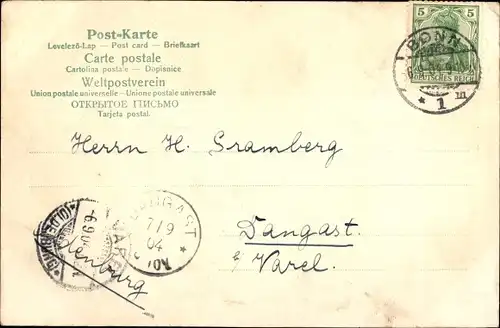 Post-Karte
Levelező-Lap — Post card — Briefkaart
Carte postale
Cartolina postale — Dopisnice
Weltpostverein
Union postale universelle - Unione postale universale
ОТКРЫТОЕ ПИСЬМО
Tarjeta postal.
5 5
DEUTSCHES REICH
BONN
* 1
Herrn H. Gramberg
Dangast
b/ Varel.
DANGAST
7/9
04
VAREL
(OLDENBURG)
6.9.04